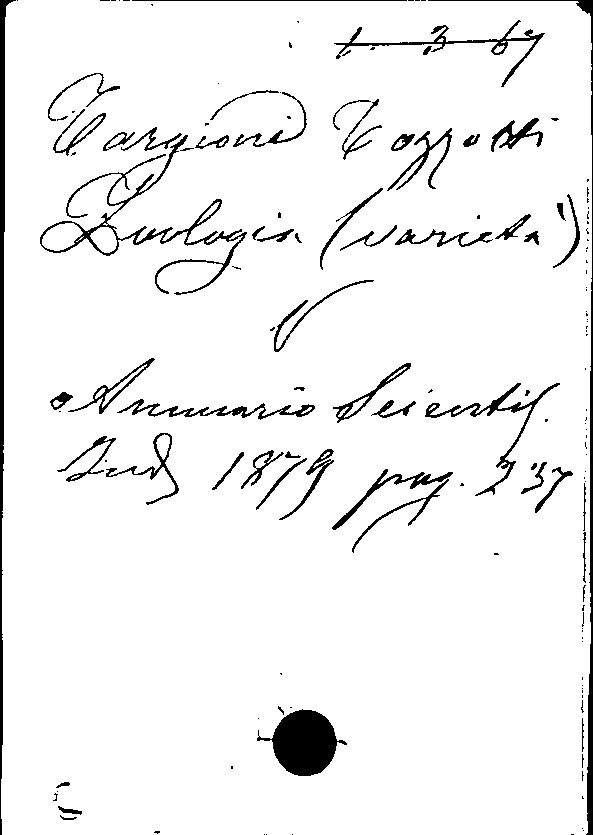 1. 3 67
Targioni Tozzetti
Zoologia (varietà)
V
Annuario Scientif.
Ind. 1879 pag. 237